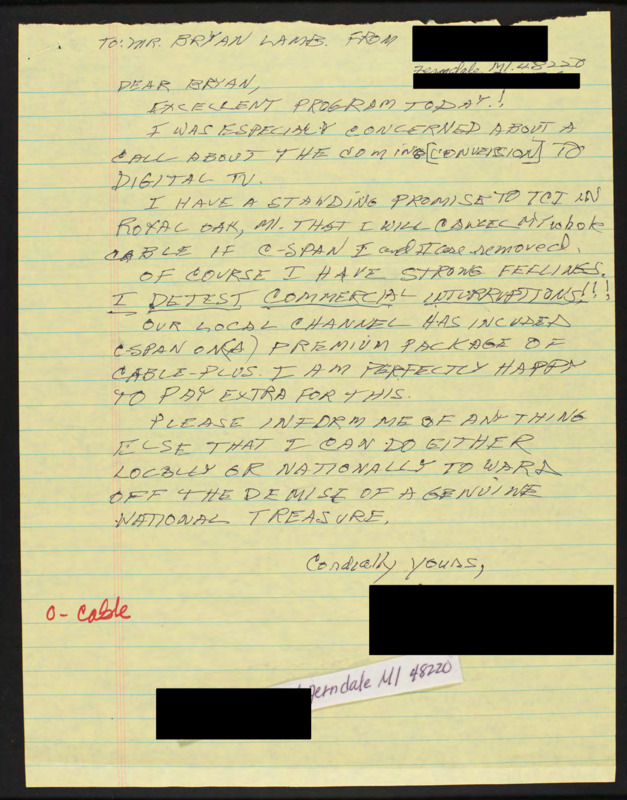 TO: MR. BRYAN LAMB. FROM
Ferndale MI. 48220
DEAR BRYAN,
EXCELLENT PROGRAM TODAY.!
I WAS ESPECIALLY CONCERNED ABOUT A
CALL ABOUT THE COMING [CONVERSION] TO
DIGITAL TV.
I HAVE A STANDING PROMISE TO TCI IN
ROYAL OAK, MI. THAT I WILL CANCEL MY
CABLE IF C-SPAN I and II are removed.
OF COURSE I HAVE STRONG FEELINGS.
I DETEST COMMERCIAL INTURRUPTIONS!!!
OUR LOCAL CHANNEL HAS INCLUDED
CSPAN ON (A) PREMIUM PACKAGE OF
CABLE-PLUS. I AM PERFECTLY HAPPY
TO PAY EXTRA FOR THIS.
PLEASE INFORM ME OF ANY THING
ELSE THAT I CAN DO EITHER
LOCALLY OR NATIONALLY TO WARD
OFF THE DEMISE OF A GENUINE
NATIONAL TREASURE.
Cordially YOURS,
O- Cable
Ferndale MI 48220